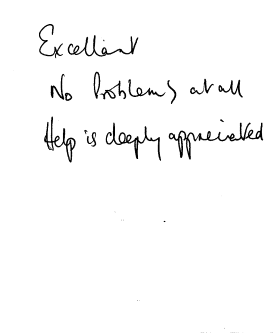 Excellent
No Problems at all
Help is deeply appreciated